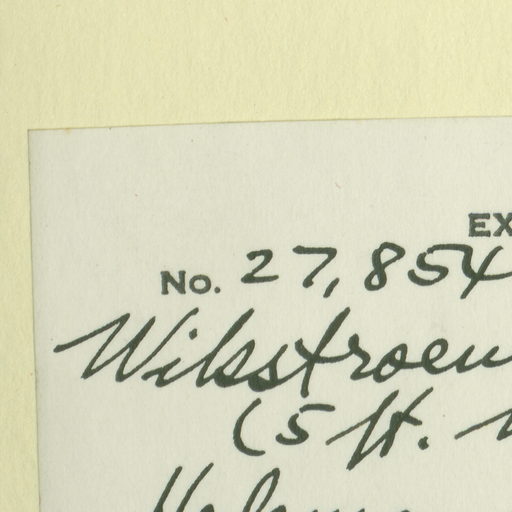 EX
No. 27,854
Wikstroem
(5 ft.